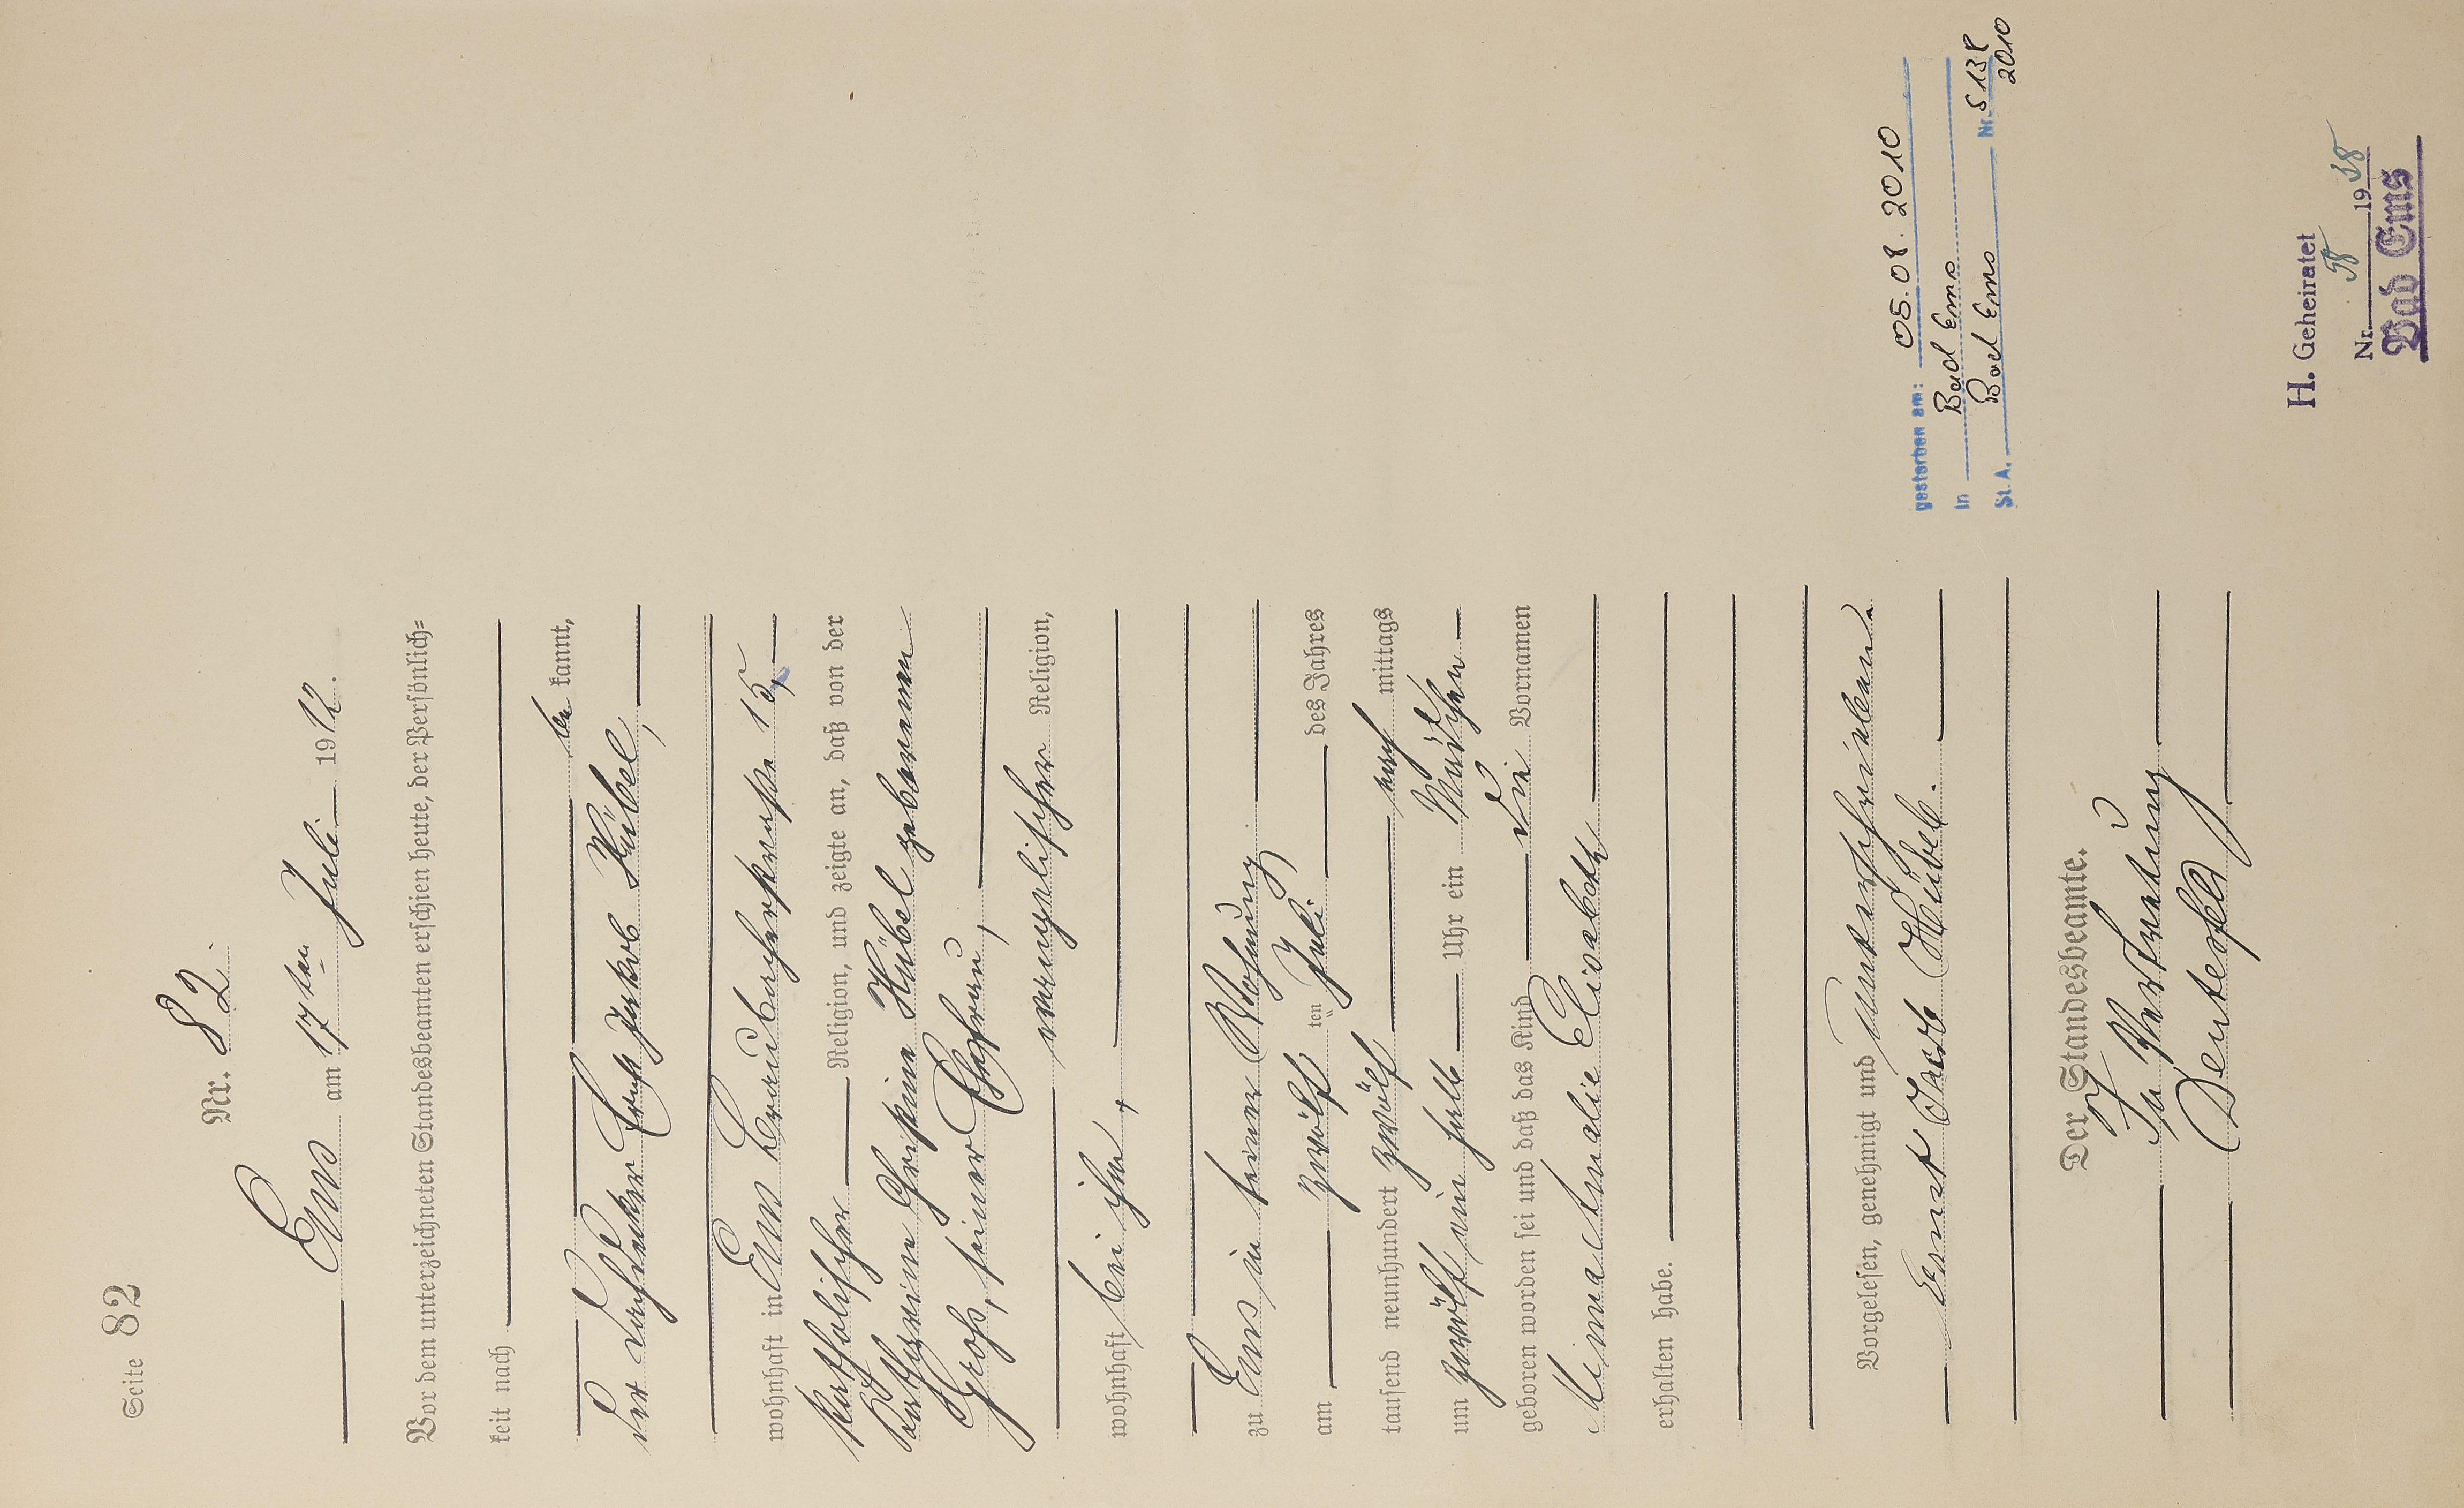 Seite 82
Nr. 82.
Ems am 17ten Juli 1912.
Vor dem unterzeichneten Standesbeamten erschien heute, der Persönlich=
keit nach
be kannt,
der Dachdecker Ernst Jakob Hübel,
wohnhaft in Ems Braubacherstraße 15,
katholischer Religion, und zeigte an, daß von der
Katharine Christine Hübel geborenen
Groß, seiner Ehefrau,
evangelischer Religion,
wohnhaft bei ihm,
zu Ems in seiner Wohnung
am zwölf ten Juli des Jahres
tausend neunhundert zwölf nach mittags
um zwölf ein halb Uhr ein Mädchen
geboren worden sei und daß das Kind die Vornamen
Mina Amalie Elisabeth
erhalten habe.
Vorgelesen, genehmigt und unterschrieben.
Ernst Jacob Hübel.
Der Standesbeamte.
In Vertretung
gestorben am: 05.08.2010
in Bad Ems
St. A. Bad Ems Nr. S 138
2010
H. Geheiratet
Nr. 58 1938
Bad Ems